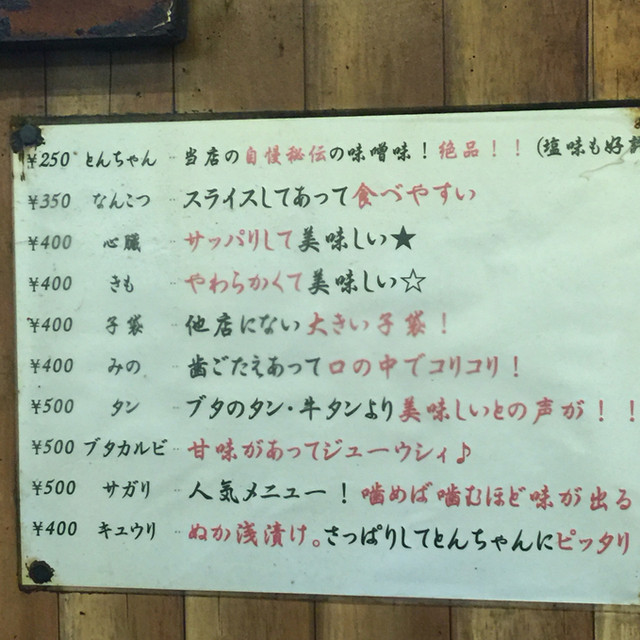 ¥250 とんちゃん … 当店の自慢秘伝の味噌味！絶品！！(塩味も好評
¥350 なんこつ … スライスしてあって食べやすい
¥400 心臓 … サッパリして美味しい★
¥400 きも … やわらかくて美味しい☆
¥400 子袋 … 他店にない大きい子袋！
¥400 みの … 歯ごたえあって口の中でコリコリ！
¥500 タン … ブタのタン・牛タンより美味しいとの声が！！
¥500 ブタカルビ … 甘味があってジューウシィ♪
¥500 サガリ … 人気メニュー！噛めば噛むほど味が出る
¥400 キュウリ … ぬか浅漬け。さっぱりしてとんちゃんにピッタリ